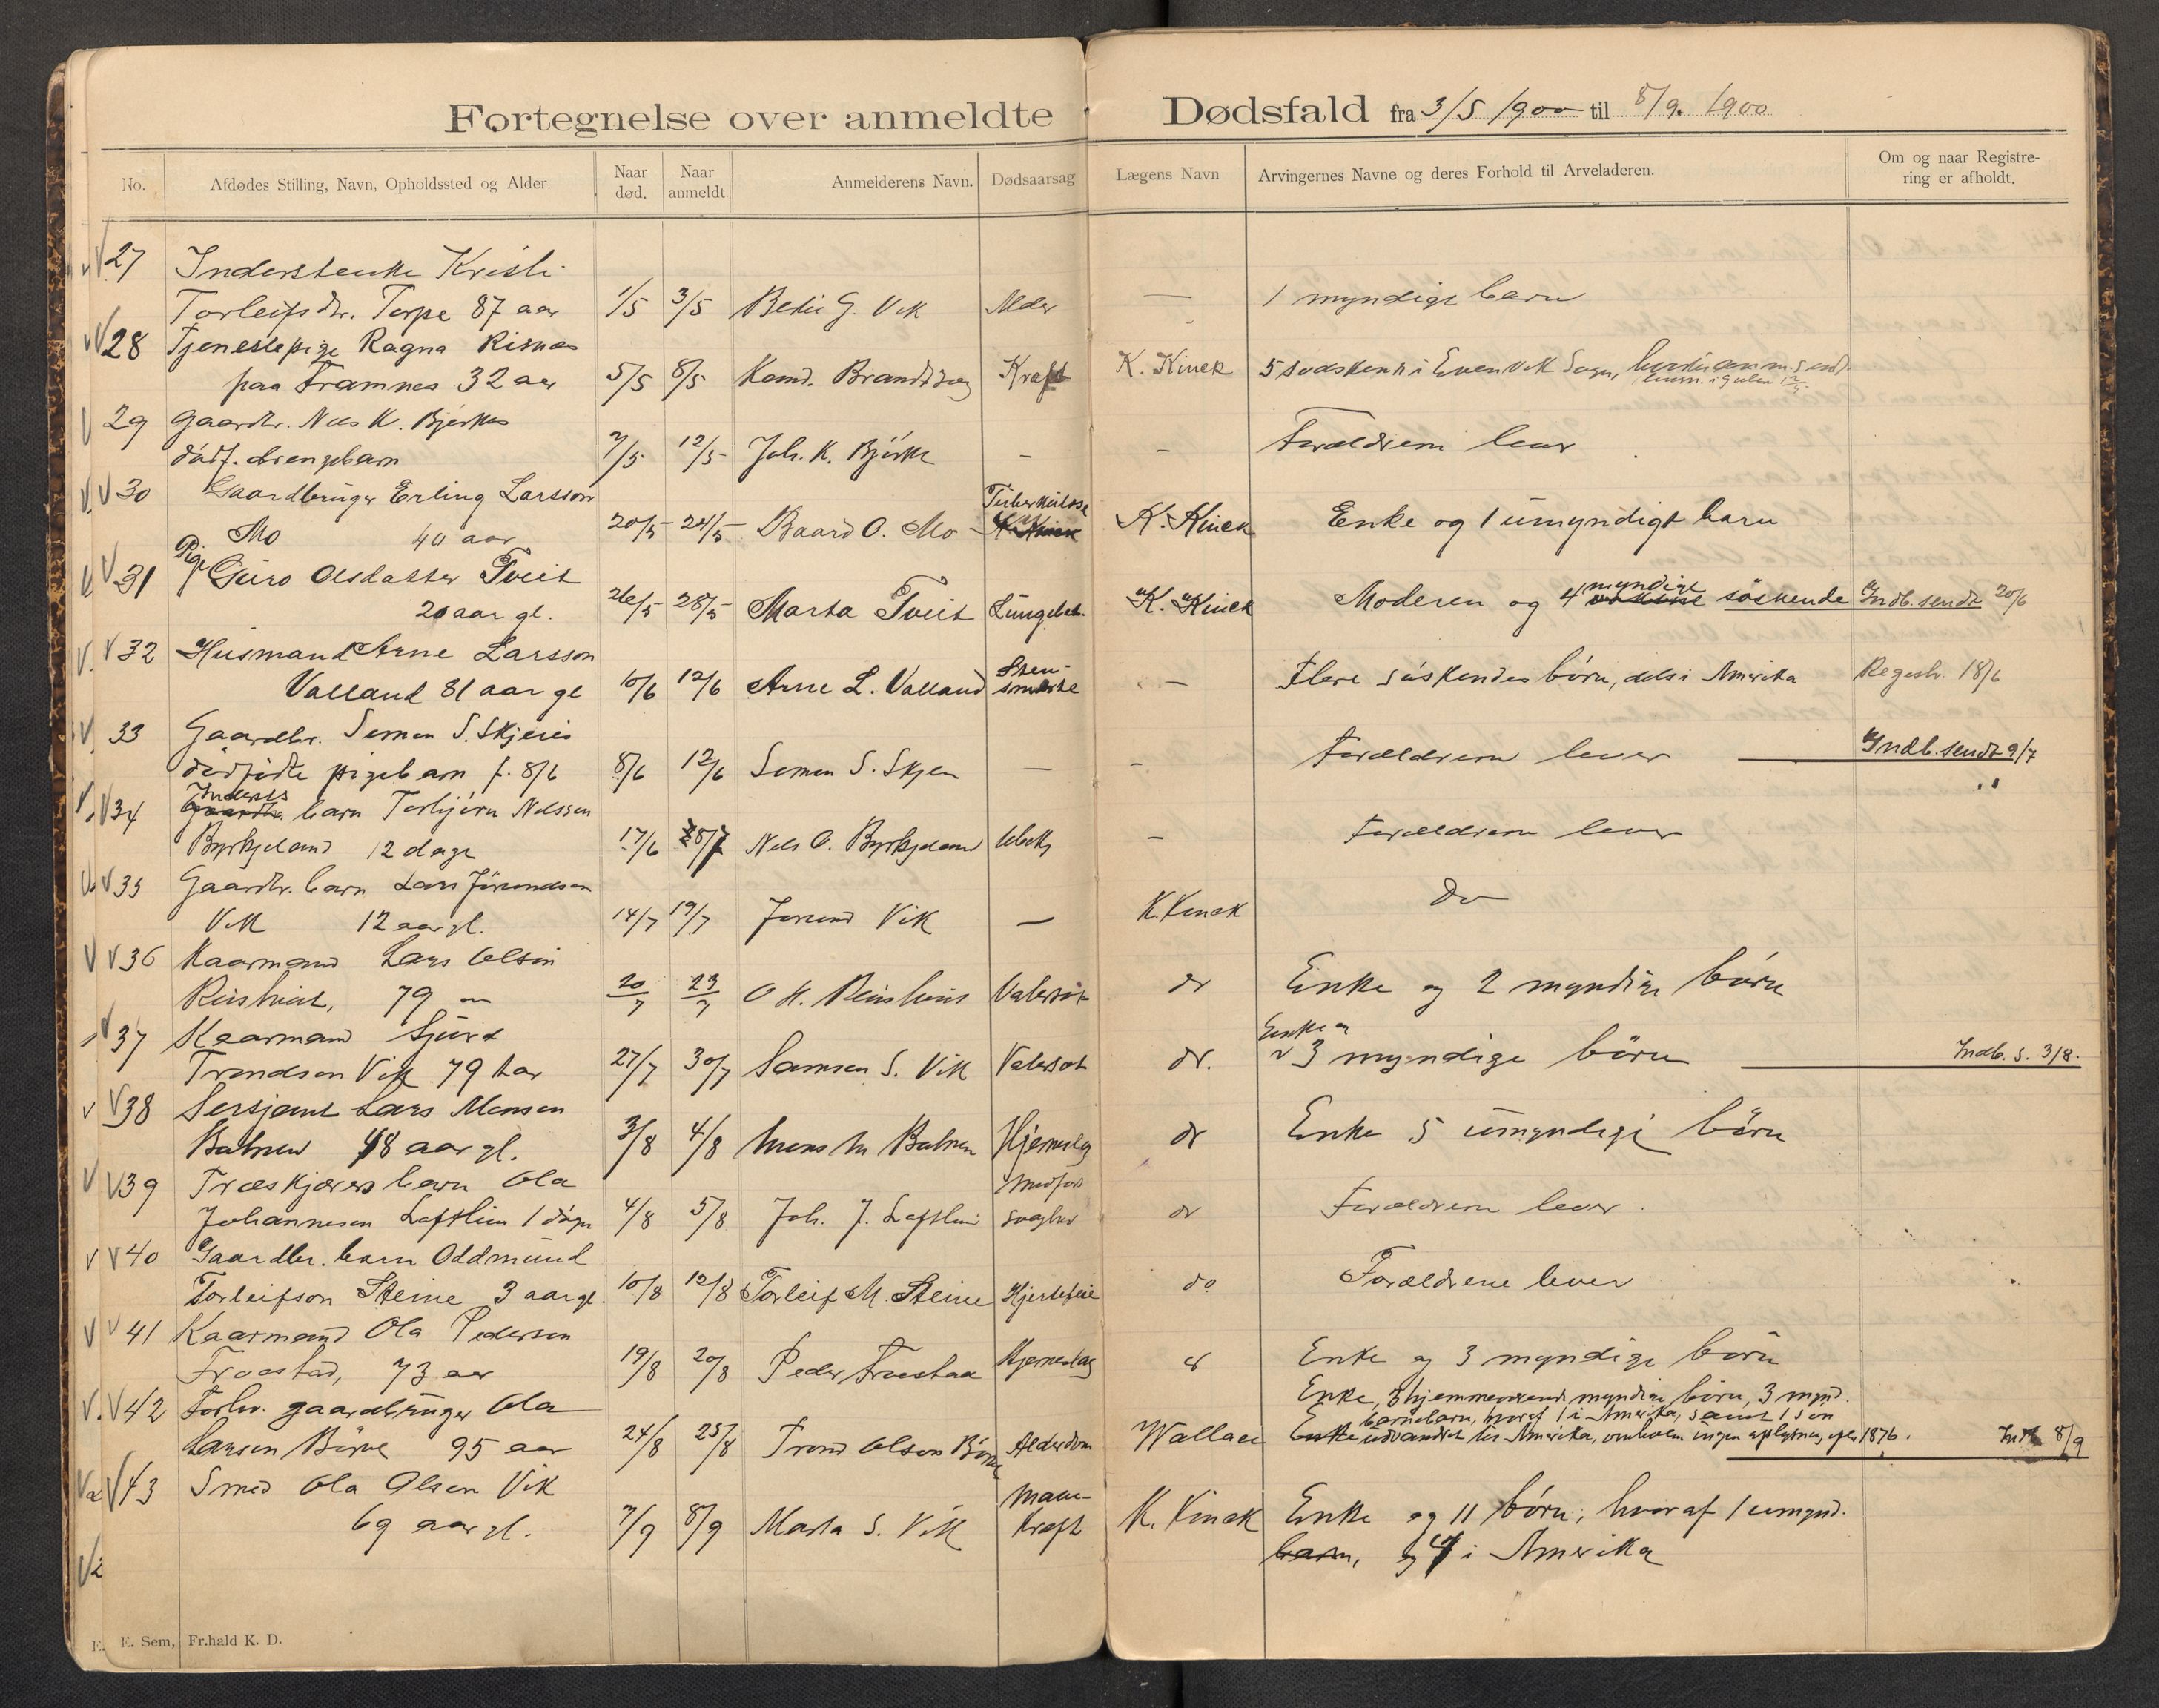 Fortegnelse over anmeldte Dødsfald fra 3/5 1900 til 8/9. 1900
No. Afdødes Stilling, Navn, Opholdssted og Alder. Naar død. Naar anmeldt Anmelderens Navn. Dødsaarsag Lægens Navn Arvingernes Navne og deres Forhold til Arveladeren. Om og naar Registrering er afholdt.
27 Inderstenke Kristi
Torleifsdtr. Torpe 87 aar 1/5 3/5 G. Vik Alder — 1 myndigt barn
28 Tjenestepige Ragna Risnes
paa Framnes 32 aar 5/5 8/5 Kræft K. Kinck 5 i Evenvik Sogn,
29 Gaardbr. Nils K. Björkes
dödf. drengebarn 7/5 12/5 Joh. K. Björke – – Forældrene lever
30 Gaardbruger Erling Larsson Tuberkulose
Mo 40 aar 20/5 24/5 Baard O. Mo K. Kinck K. Kinck Enke og 1 umyndigt barn
31 Pige Guro Olsdatter Tveit myndige
20 aar gl. 26/5 28/5 Marta Tveit K. Kinck Moderen og 4 söskende Indb. sendt 20/6
32 Husmand Arne Larsson Sten-
Valland 81 aar gl 10/6 12/6 Arne L. Valland smerte — Flere söskendes börn, dels i Amerika Regestr. 18/6
33 Gaardbr. Simon S. Skjeris
dödfödte pigebarn f. 8/6 8/6 12/6 Simon S. Skjer — – Forældrene lever Indb. sendt 9/7
34 Inderst Gaardbr. barn Torbjörn Nilssen
Byrkjeland 12 dage 17/6 8/7 Nils O. Byrkjeland Ubek. – Forældrene lever
35 Gaardbr. barn Lars Jörundsen
Vik 12 aar gl. 14/7 19/7 Jorund Vik — K. Kinck Do
36 Kaarmand Lars Olsen
79 20/7 23/7 Vatersot do Enke og 2 myndige börn
37 Kaarmand Sjurd Enke og
Trondsen Vik 79 aar 27/7 30/7 Samson S. Vik Vatersot do. 3 myndige börn Indb. s. 3/8.
38 Sersjant Lars Monsen
Balnew 48 aar gl. 3/8 4/8 Mons M Hjerneslag do Enke 5 umyndige börn
39 Træskjærers barn Ola Medfødt
Johannesen Lofthus 1 døgn 4/8 5/8 Joh. J. Lofthus svaghed do Forældrene lever.
40 Gaardbr. barn Oddmund
Torleifson Steine 3 aar gl. 10/8 12/8 Torleif M. Steine Hjertefeil do Forældrene lever
41 Kaarmand Ola Pedersen
73 aar 19/8 20/8 Peder Hjerneslag Enke og 3 myndige börn
42 Forhv. gaardbruger Ola Enke, 3 hjemmeværende myndige börn, 3 mynd.
barnebarn, hvoraf 1 i Amerika, samt 1 sön
Larsen Börve 95 aar 24/8 25/8 Trond Olson Börve Alderdom Wallace Enke udvandret til Amerika, om hvem ingen oplysning efter 1876. Indb 8/9
43 Smed Ola Olsen Vik Mave-
69 aar gl. 7/9 8/9 Marta S. Vik Kræft K. Kinck Enke og 11 börn, hvoraf 1 umynd.
barn, og 4 i Amerika
E. Sem, Fr.hald K. D.